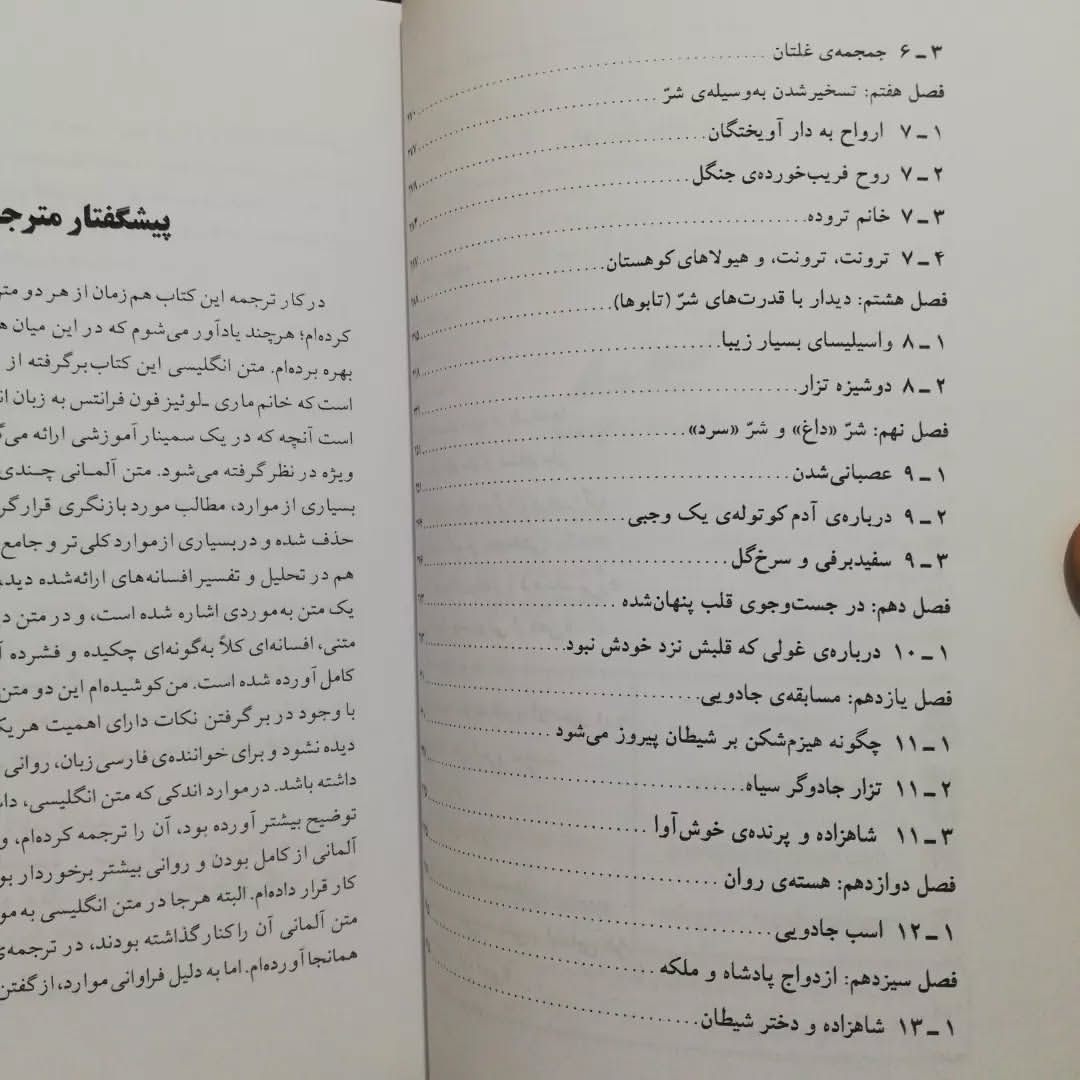 ۳ ـ ۶ جمجمه‌ی غلتان
فصل هفتم: تسخیرشدن به‌وسیله‌ی شرّ
۱ ـ ۷ ارواح به دار آویختگان
۲ ـ ۷ روح فریب‌خورده‌ی جنگل
۳ ـ ۷ خانم تروده
۴ ـ ۷ ترونت، ترونت، و هیولاهای کوهستان
فصل هشتم: دیدار با قدرت‌های شرّ (تابوها)
۱ ـ ۸ واسیلیسای بسیار زیبا
۲ ـ ۸ دوشیزه تزار
فصل نهم: شرّ «داغ» و شرّ «سرد»
۱ ـ ۹ عصبانی‌شدن
۲ ـ ۹ درباره‌ی آدم کوتوله‌ی یک وجبی
۳ ـ ۹ سفیدبرفی و سرخ‌گل
فصل دهم: در جست‌وجوی قلب پنهان‌شده
۱ ـ ۱۰ درباره‌ی غولی که قلبش نزد خودش نبود
فصل یازدهم: مسابقه‌ی جادویی
۱ ـ ۱۱ چگونه هیزم‌شکن بر شیطان پیروز می‌شود
۲ ـ ۱۱ تزار جادوگر سیاه
۳ ـ ۱۱ شاهزاده و پرنده‌ی خوش‌آوا
فصل دوازدهم: هسته‌ی روان
۱ ـ ۱۲ اسب جادویی
فصل سیزدهم: ازدواج پادشاه و ملکه
۱ ـ ۱۳ شاهزاده و دختر شیطان
پیشگفتار
در کار ترجمه این کتاب هم‌زمان از هر دو
کرده‌ام؛ هرچند یادآور می‌شوم که در این میان
بهره برده‌ام. متن انگلیسی این کتاب برگرفته از
است که خانم ماری ـ لوئیز فون فرانتس به زبان
است آنچه که در یک سمینار آموزشی ارائه
ویژه در نظر گرفته می‌شود. متن آلمانی چندی
بسیاری از موارد، مطالب مورد بازنگری
حذف شده و در بسیاری از موارد کلی‌تر و جامع
هم در تحلیل و تفسیر افسانه‌های ارائه‌شده دید،
یک متن به موردی اشاره شده است، و در متن
متنی، افسانه‌ای کلاً به‌گونه‌ای چکیده و فشرده
کامل آورده شده است. من کوشیده‌ام این دو متن
با وجود در بر گرفتن نکات دارای اهمیت
دیده نشود و برای خواننده‌ی فارسی زبان، روانی
داشته باشد. در موارد اندکی که متن انگلیسی،
توضیح بیشتر آورده بود، آن را ترجمه کرده‌ام، و
آلمانی از کامل بودن و روانی بیشتر برخوردار
کار قرار داده‌ام. البته هرجا در متن انگلیسی به
متن آلمانی آن را کنار گذاشته بودند، در ترجمه‌ی
همانجا آورده‌ام. اما به دلیل فراوانی موارد، از گفتن